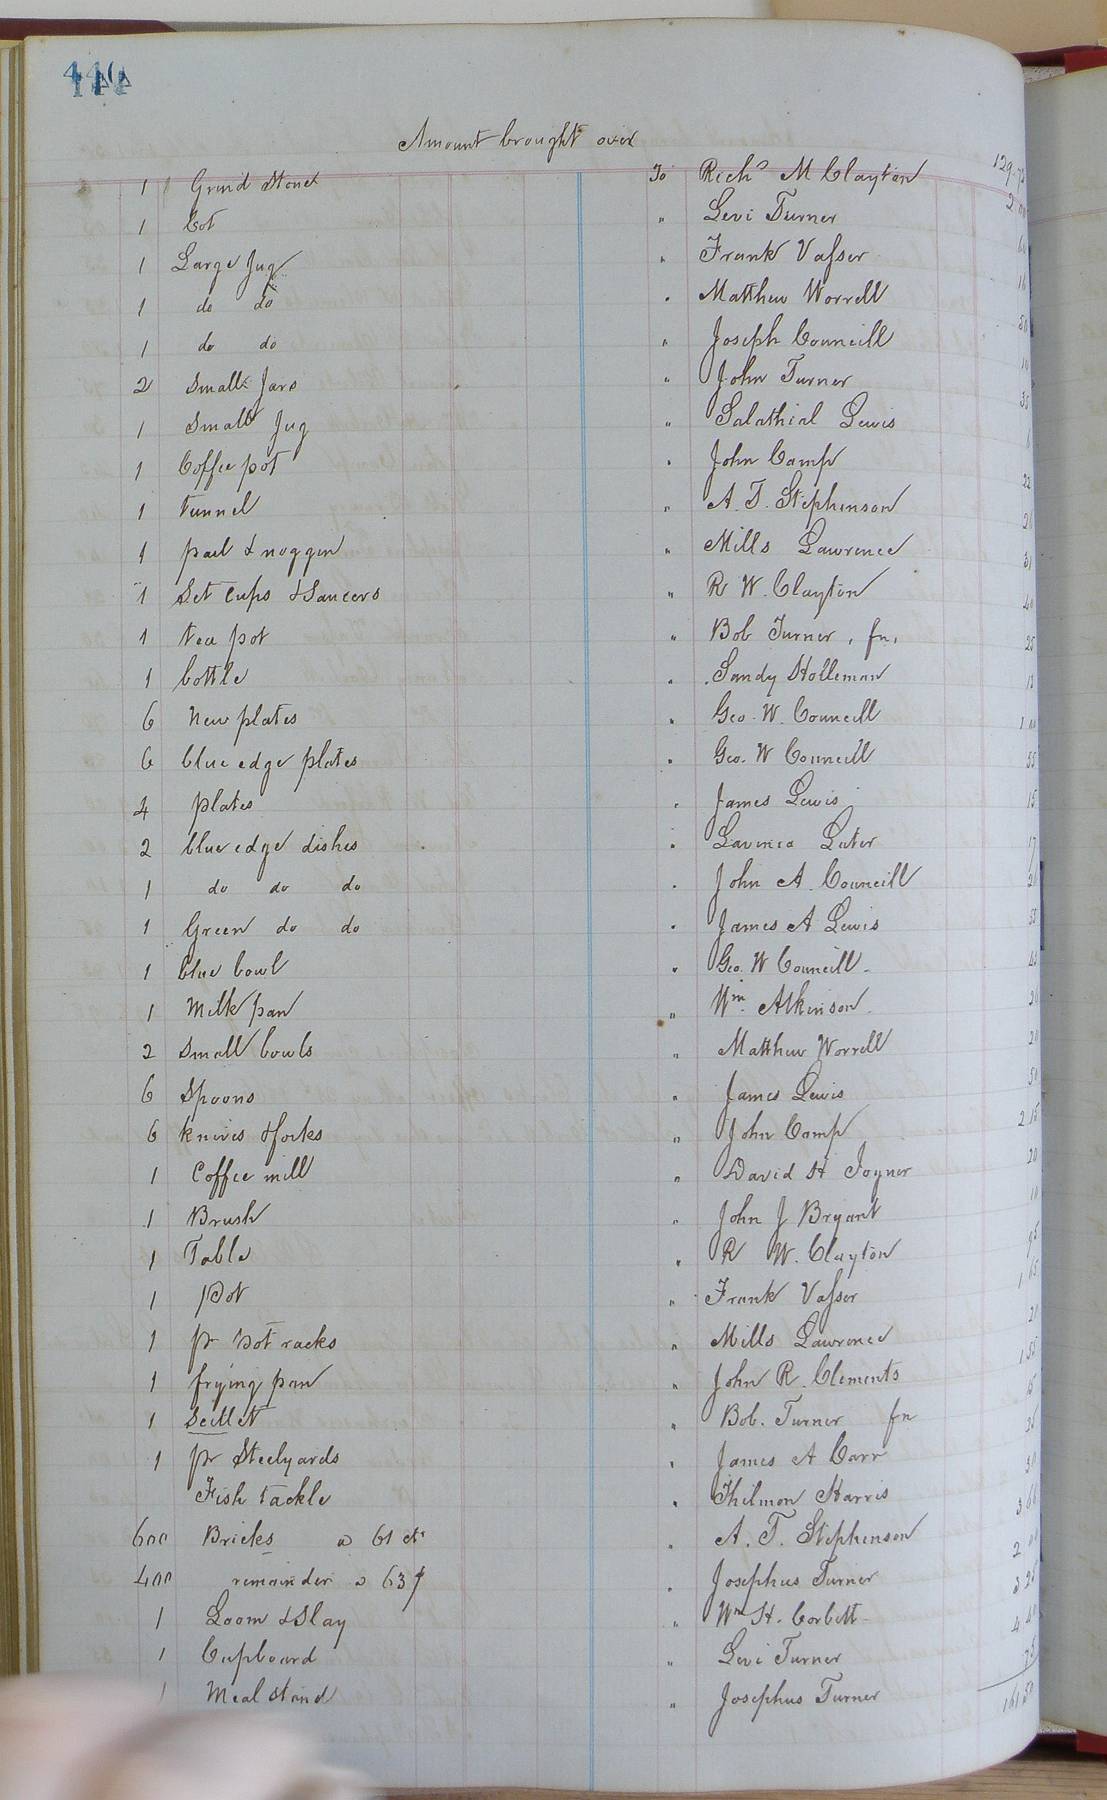 440
Amount brought over
129.72
1 Grind Stone To Richd M Clayton 2 00
1 Cot " Levi Turner
1 Large Jug " Frank Vasser
1 do do " Matthew Worrell 50
1 do do " Joseph Councill 10
2 Small Jars " John Turner 35
1 Small Jug " Salathial Lewis
1 Coffee pot " John Camp 22
1 tunnel " A. T. Stephenson 20
1 pail & noggin " Mills Lawrence 31
1 Set Cups & Saucers " R W. Clayton 40
1 tea pot " Bob Turner, fn, 25
1 bottle " Sandy Holleman 12
6 New plates " Geo. W. Councill 1 00
6 blue edge plates " Geo. W Councill 55
4 plates " James Lewis 15
2 blue edge dishes " Lavinia Luter 17
1 do do do " John A. Councill 20
1 Green do do " James A Lewis
1 blue bowl " Geo. W Councill
1 Milk pan " Wm Atkinson 20
2 Small bowls " Matthew Worrell 20
6 Spoons " James Lewis 50
6 knives & forks " John Camp 2 15
1 Coffee mill " David H Joyner 20
1 Brush " John J Bryant 10
1 Table " R W. Clayton 95
1 Pot " Frank Vasser 1 65
1 pr pot racks " Mills Lawrence 20
1 frying pan " John R. Clements 1 55
1 Scillet " Bob. Turner fn
1 pr Steelyards " James A Carr
Fish tackle " Philmon Harris 50
600 Bricks @ 61 cts " A. T. Stephenson 3 66
400 remainder @ 63 ¢ " Josephus Turner 2
1 Loom & Slay " Wm H. Corbitt 3 25
1 Cupboard " Levi Turner 4 40
1 Meal stand " Josephus Turner 75
161 50